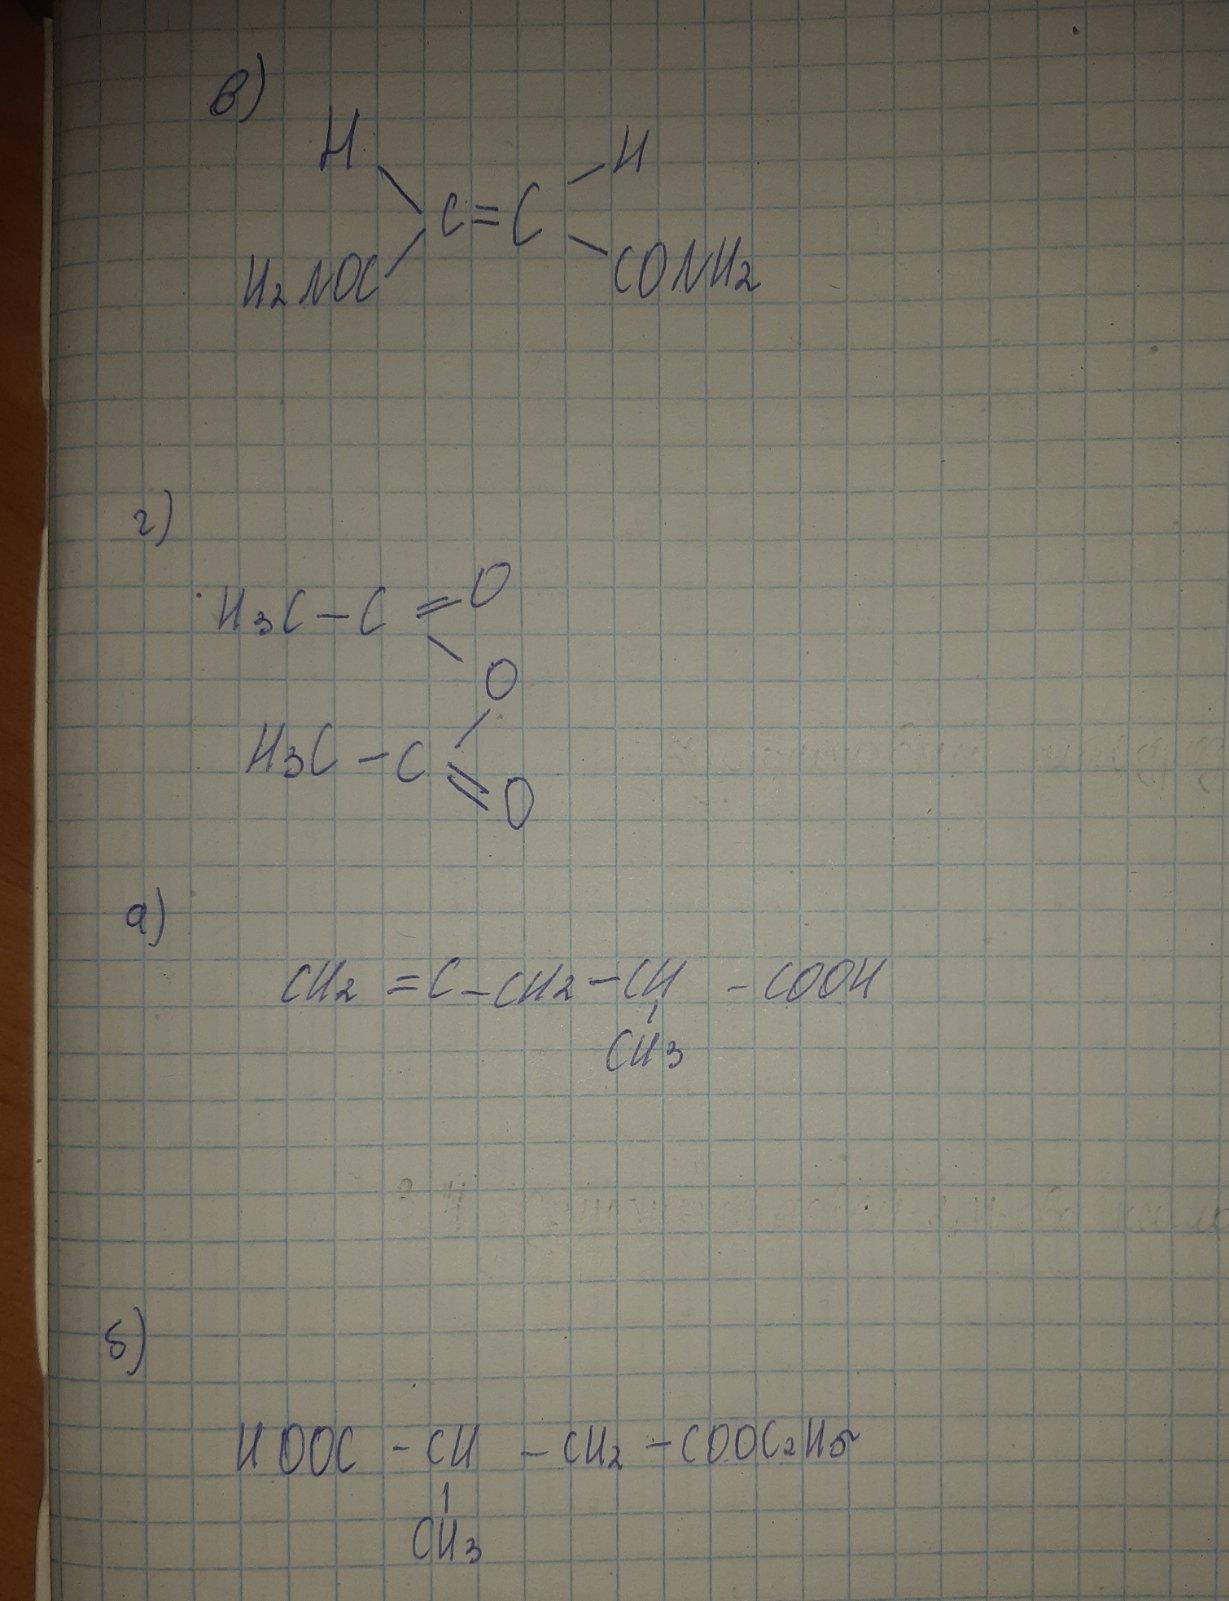 в)
H H
C = C
H2NOC CONH2
г)
H3C – C = O
O
H3C – C = O
а)
CH2 = C – CH2 – CH – COOH
CH3
б)
HOOC – CH – CH2 – COOC2H5
CH3